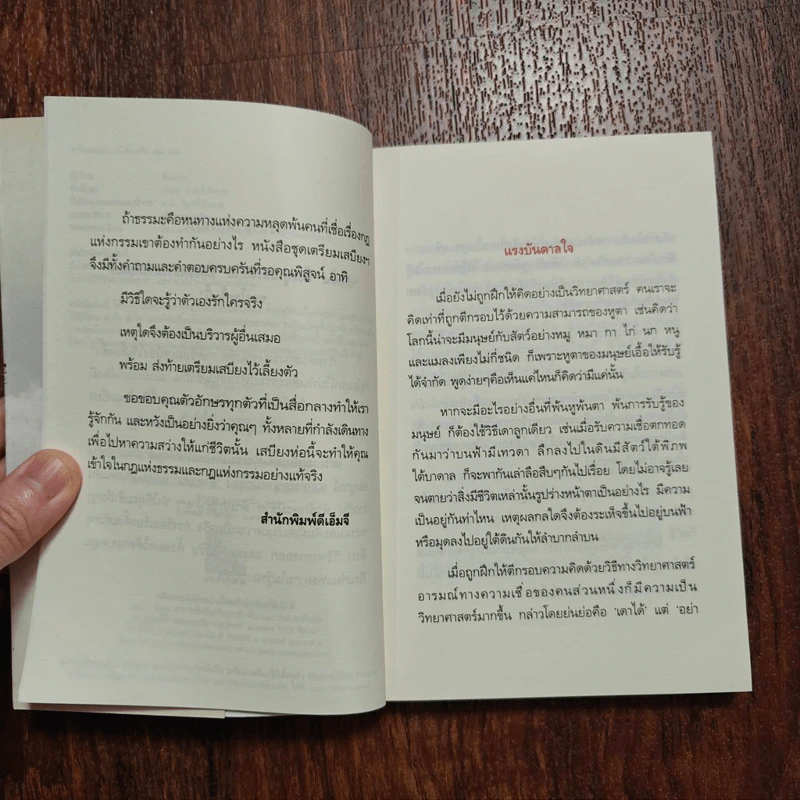 ถ้าธรรมะคือหนทางแห่งความหลุดพ้นคนที่เชื่อเรื่องกฎ
แห่งกรรมเขาต้องทำกันอย่างไร หนังสือชุดเตรียมเสบียงฯ
จึงมีทั้งคำถามและคำตอบครบครันที่รอคุณพิสูจน์ อาทิ
มีวิธีใดจะรู้ว่าตัวเองรักใครจริง
เหตุใดจึงต้องเป็นบริวารผู้อื่นเสมอ
พร้อม ส่งท้ายเตรียมเสบียงไว้เลี้ยงตัว
ขอขอบคุณตัวอักษรทุกตัวที่เป็นสื่อกลางทำให้เรา
รู้จักกัน และหวังเป็นอย่างยิ่งว่าคุณๆ ทั้งหลายที่กำลังเดินทาง
เพื่อไปหาความสว่างให้แก่ชีวิตนั้น เสบียงห่อนี้จะทำให้คุณ
เข้าใจในกฎแห่งธรรมและกฎแห่งกรรมอย่างแท้จริง
สำนักพิมพ์ดีเอ็มจี
แรงบันดาลใจ
เมื่อยังไม่ถูกฝึกให้คิดอย่างเป็นวิทยาศาสตร์ คนเราจะ
คิดเท่าที่ถูกตีกรอบไว้ด้วยความสามารถของหูตา เช่นคิดว่า
โลกนี้น่าจะมีมนุษย์กับสัตว์อย่างหมู หมา กา ไก่ นก หนู
และแมลงเพียงไม่กี่ชนิด ก็เพราะหูตาของมนุษย์เอื้อให้รับรู้
ได้จำกัด พูดง่ายๆคือเห็นแค่ไหนก็คิดว่ามีแค่นั้น
หากจะมีอะไรอย่างอื่นที่พ้นหูพ้นตา พ้นการรับรู้ของ
มนุษย์ ก็ต้องใช้วิธีเดาลูกเดียว เช่นเมื่อรับความเชื่อตกทอด
กันมาว่าบนฟ้ามีเทวดา ลึกลงไปในดินมีสัตว์ใต้พิภพ
ใต้บาดาล ก็จะพากันเล่าลือสืบๆกันไปเรื่อย โดยไม่อาจรู้เลย
จนตายว่าสิ่งมีชีวิตเหล่านั้นรูปร่างหน้าตาเป็นอย่างไร มีความ
เป็นอยู่กันท่าไหน เหตุผลกลใดจึงต้องระเห็จขึ้นไปอยู่บนฟ้า
หรือมุดลงไปอยู่ใต้ดินกันให้ลำบากลำบน
เมื่อถูกฝึกให้ตีกรอบความคิดด้วยวิธีทางวิทยาศาสตร์
อารมณ์ทางความเชื่อของคนส่วนหนึ่งก็มีความเป็น
วิทยาศาสตร์มากขึ้น กล่าวโดยย่นย่อคือ 'เดาได้' แต่ 'อย่า